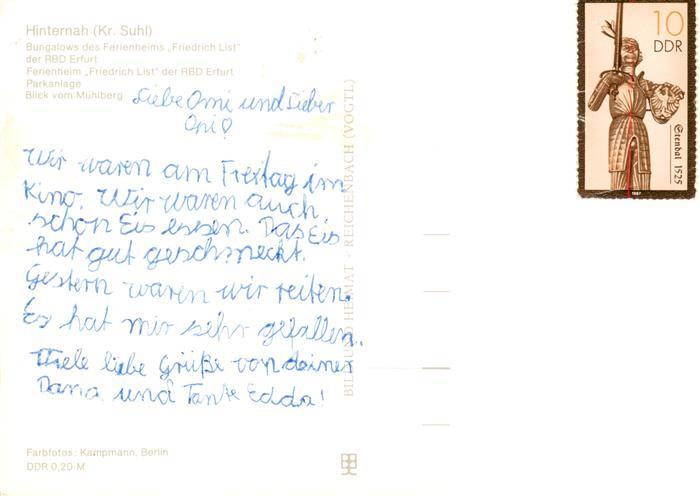 Hinternah (Kr. Suhl)
Bungalows des Ferienheims „Friedrich List"
der RBD Erfurt
Ferienheim „Friedrich List" der RBD Erfurt
Parkanlage
Blick vom Mühlberg
Liebe Omi und Lieber
Opi!
Wir waren am Freitag im
Kino. Wir waren auch
schon Eis essen. Das Eis
hat gut geschmeckt.
Gestern waren wir reiten.
Es hat mir sehr gefallen.
Viele liebe Grüße von deiner
Dana und Tante Edda!
Farbfotos: Kampmann, Berlin
DDR 0,20 M
BILD UND HEIMAT · REICHENBACH (VOGTL)
10
DDR
Stendal 1525
1987